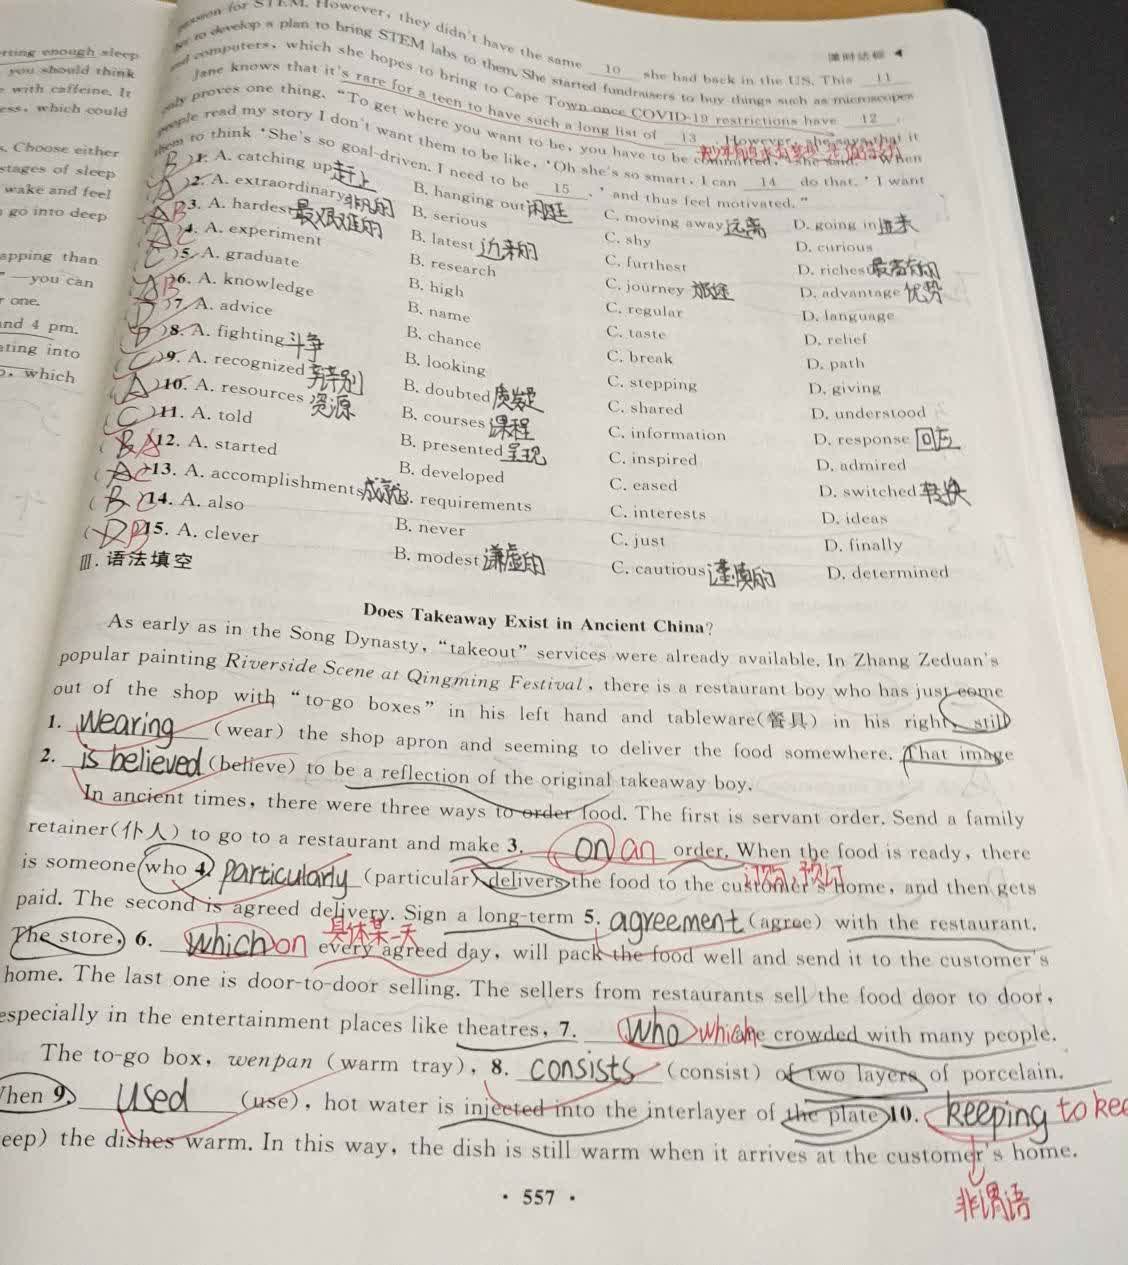 erting enough sleep
you should think
with caffeine. It
ess, which could
Choose either
stages of sleep
wake and feel
go into deep
apping than
—you can
r one.
and 4 pm.
eting into
, which
课时达标
ression for STEM. However, they didn't have the same 10 she had back in the US. This 11
her to develop a plan to bring STEM labs to them. She started fundraisers to buy things such as microscopes
and computers, which she hopes to bring to Cape Town once COVID-19 restrictions have 12 .
Jane knows that it's rare for a teen to have such a long list of 13 . However, she says that it
only proves one thing. "To get where you want to be, you have to be committed," she said. "When
people read my story I don't want them to be like, 'Oh she's so smart, I can 14 do that.' I want
them to think 'She's so goal-driven. I need to be 15 ,' and thus feel motivated."
( B )1. A. catching up 赶上 B. hanging out 闲逛 C. moving away 远离 D. going in 进来
( A )2. A. extraordinary 非凡的 B. serious C. shy D. curious
( A B 3. A. hardest 最艰难的 B. latest 近来的 C. furthest D. richest 最富有的
( A C 4. A. experiment B. research C. journey 旅途 D. advantage 优势
( C )5. A. graduate B. high C. regular D. language
( A B 6. A. knowledge B. name C. taste D. relief
( D )7. A. advice B. chance C. break D. path
( D )8. A. fighting 斗争 B. looking C. stepping D. giving
( C )9. A. recognized 辨别 B. doubted 质疑 C. shared D. understood
( A )10. A. resources 资源 B. courses 课程 C. information D. response 回应
( C )11. A. told B. presented 呈现 C. inspired D. admired
( B A 12. A. started B. developed C. eased D. switched 转换
( A C 13. A. accomplishments 成就 B. requirements C. interests D. ideas
( B C 14. A. also B. never C. just D. finally
( D B 15. A. clever B. modest 谦虚的 C. cautious 谨慎的 D. determined
Ⅲ. 语法填空
Does Takeaway Exist in Ancient China?
As early as in the Song Dynasty, "takeout" services were already available. In Zhang Zeduan's
popular painting Riverside Scene at Qingming Festival, there is a restaurant boy who has just come
out of the shop with "to-go boxes" in his left hand and tableware(餐具) in his right, still
1. Wearing (wear) the shop apron and seeming to deliver the food somewhere. That image
2. is believed (believe) to be a reflection of the original takeaway boy.
In ancient times, there were three ways to order food. The first is servant order. Send a family
retainer(仆人) to go to a restaurant and make 3. on an order. When the food is ready, there
订购, 预订
is someone who 4. particularly (particular) delivers the food to the customer's home, and then gets
paid. The second is agreed delivery. Sign a long-term 5. agreement (agree) with the restaurant.
具体某一天
The store, 6. which on every agreed day, will pack the food well and send it to the customer's
home. The last one is door-to-door selling. The sellers from restaurants sell the food door to door,
especially in the entertainment places like theatres, 7. who which are crowded with many people.
The to-go box, wenpan (warm tray), 8. consists (consist) of two layers of porcelain.
When 9. used (use), hot water is injected into the interlayer of the plate 10. keeping to kee
eep) the dishes warm. In this way, the dish is still warm when it arrives at the customer's home.
非谓语
· 557 ·